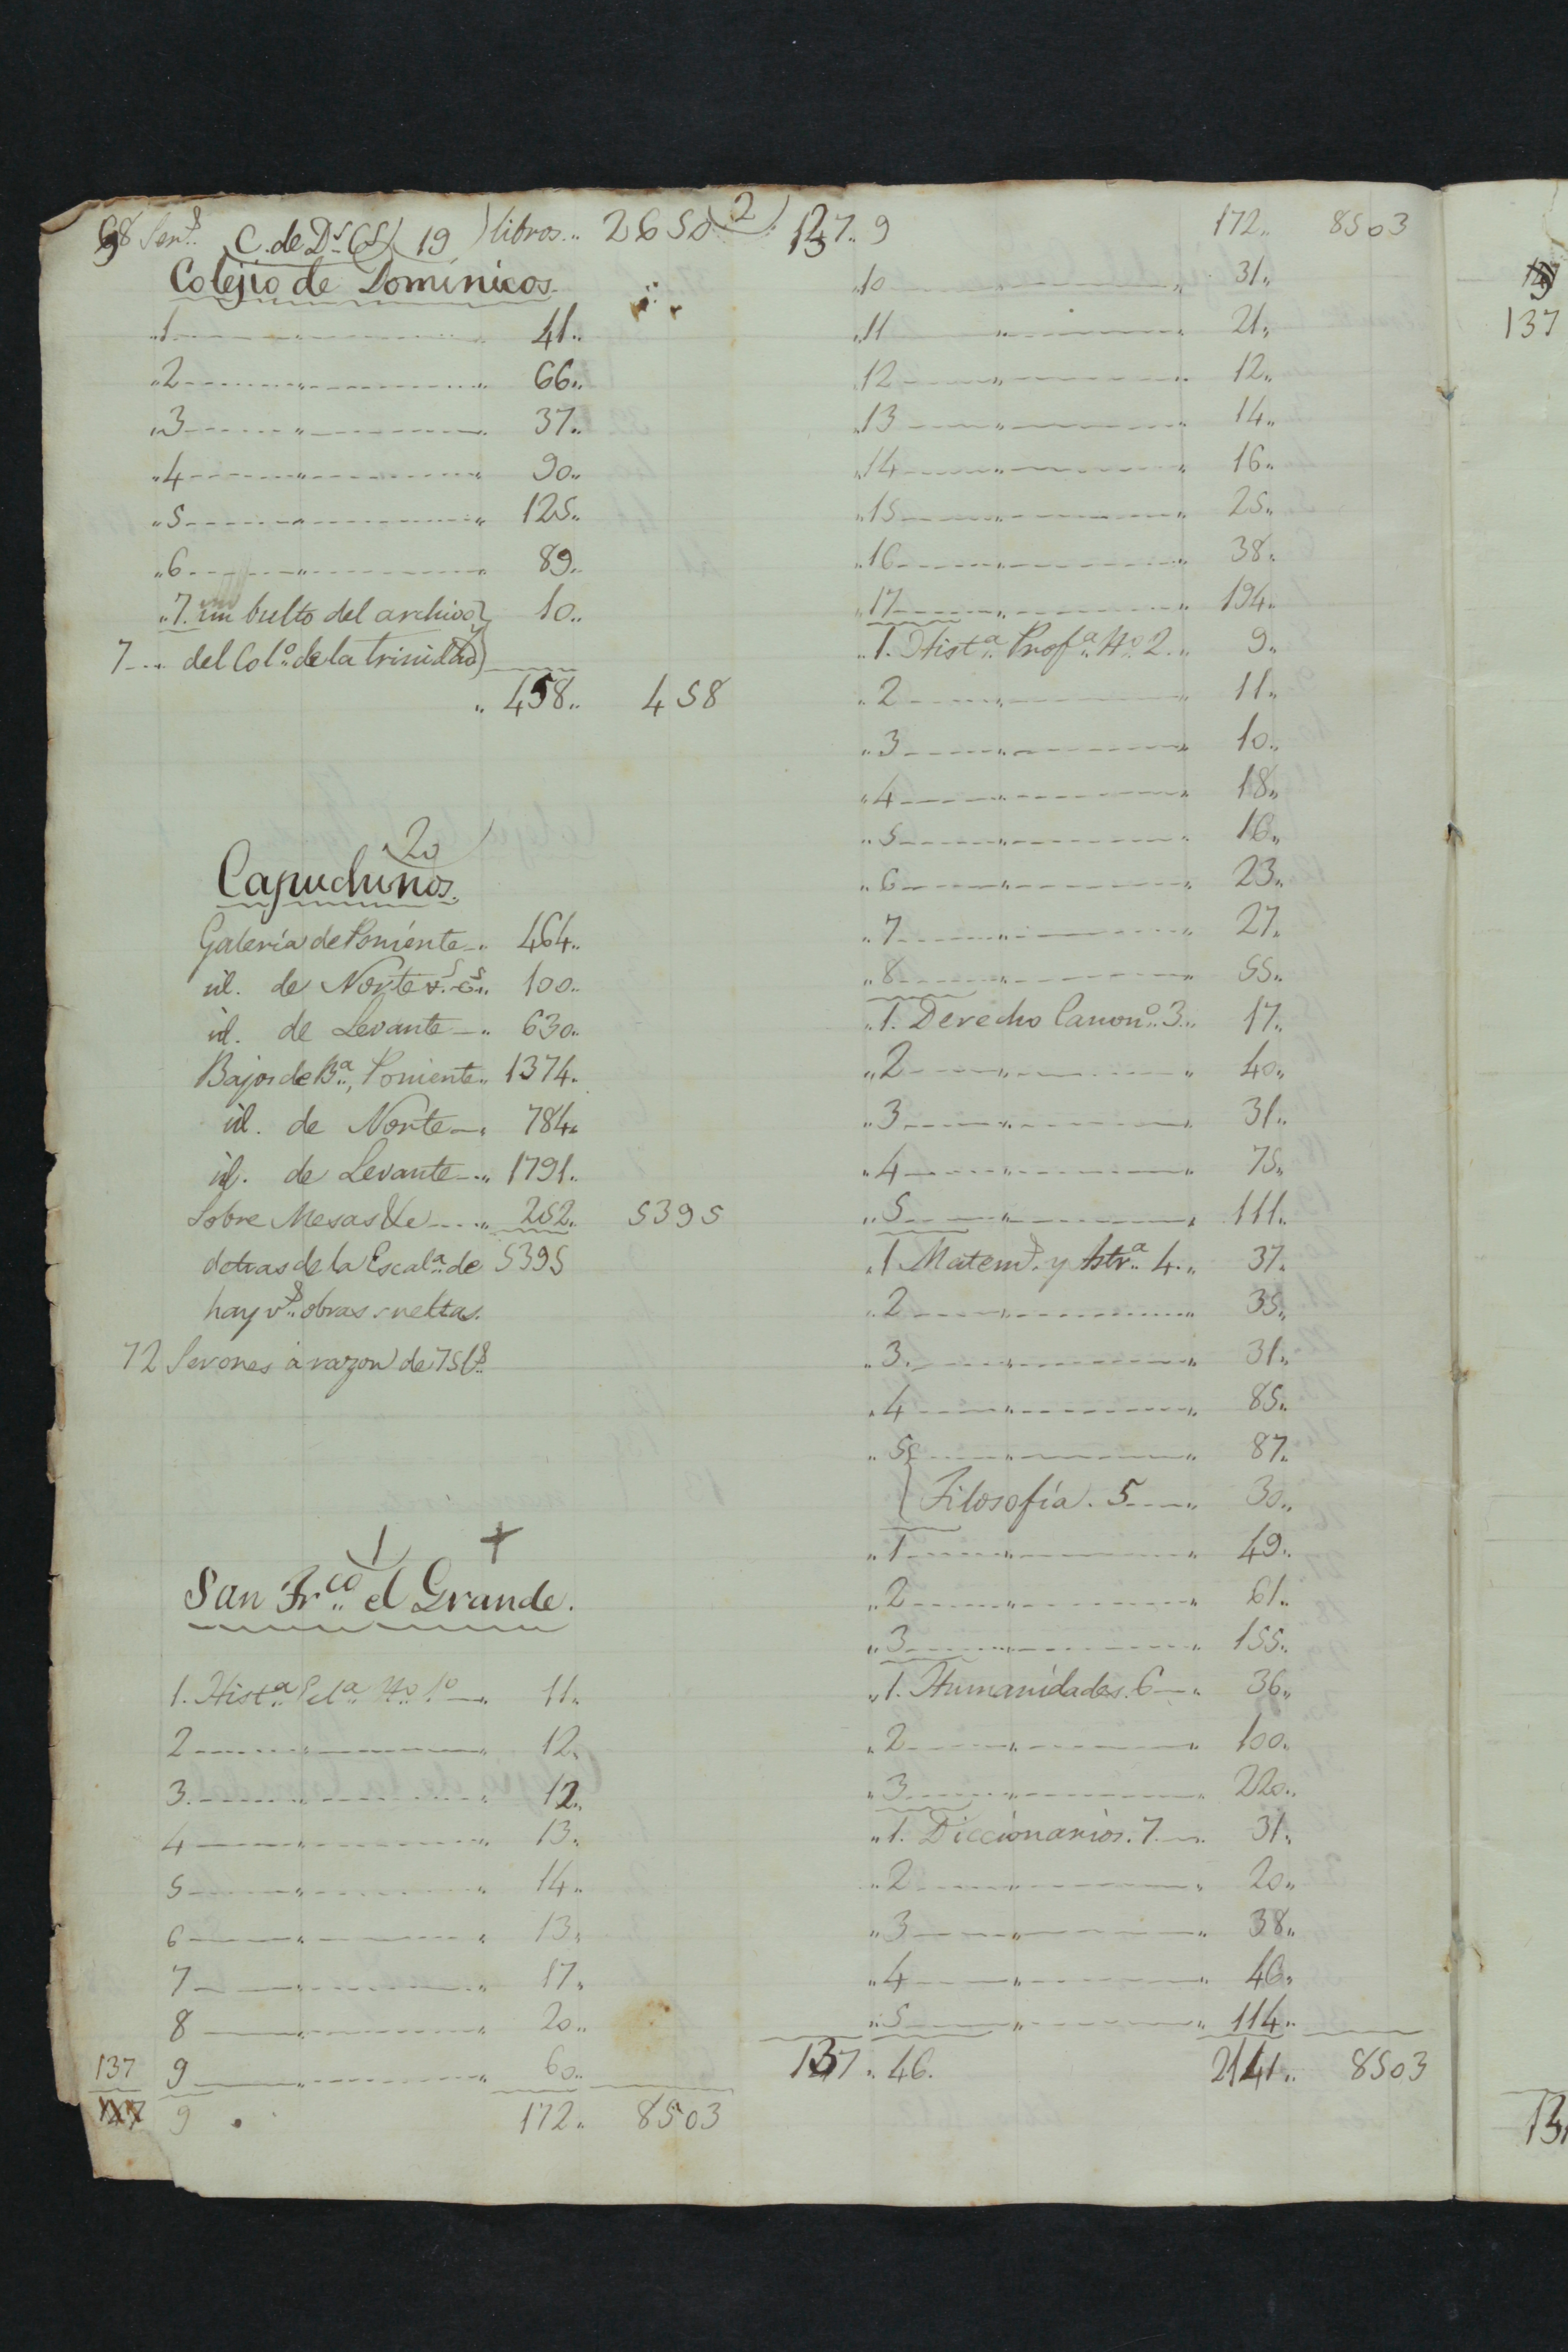 68 Ser.s C. de D.s C.s 19 libros.. 2650
Colejio de Dominicos.
"1 " 41..
"2 " 66..
"3 " 37..
"4 " 90..
"5 " 125..
"6 " 89..
"7. un bulto del archivo 10..
7 del Col.o de la trinidad
" 458.. 458
20
Capuchinos.
Galería de Poniente " 464..
id. de Norte 100..
id. de Levante " 630..
Bajos de B.a, Poniente.. 1374.
id. de Norte " 784..
id. de Levante " 1791..
Sobre Mesas &c " 252.. 5395
detras de la Escal.a de 5395
hay v.s obras sueltas.
72 Serones á razon de 75 l.s
1 +
San Fr.co el Grande.
1. Hist.a Ecl.a N.o 1.o " 11..
2 " 12..
3. " 12..
4 " 13..
5 " 14..
6 " 13..
7 " 17..
8 " 20..
137 9 " 60..
127 9 172.. 8503
2
137.. 9 172.. 8503
"10 " 31..
"11 " 21..
"12 " 12..
"13 " 14..
"14 " 16..
"15 " 25..
"16 " 38..
"17 " 194..
"1. Hist.a Prof.a N.o 2.. 9..
"2 " 11..
"3 " 10..
"4 " 18..
"5 " 16..
"6 " 23..
"7 " 27..
"8 " 55..
"1. Derecho Canon.o 3.. 17..
"2 " 40..
"3 " 31..
"4 " 75..
"5 " 111..
"1 Matem.s y Astr.a 4.. 37..
"2 " 35..
"3. " 31..
"4 " 85..
"5 " 87..
Filosofía. 5 " 30..
"1 " 49..
"2 " 61..
"3 " 155..
"1. Humanidades. 6 " 36..
"2 " 100..
"3 " 220..
"1. Diccionarios. 7 31..
"2 " 20..
"3 " 38..
"4 " 46..
"5 " 114..
137.. 46. 2141.. 8503
137